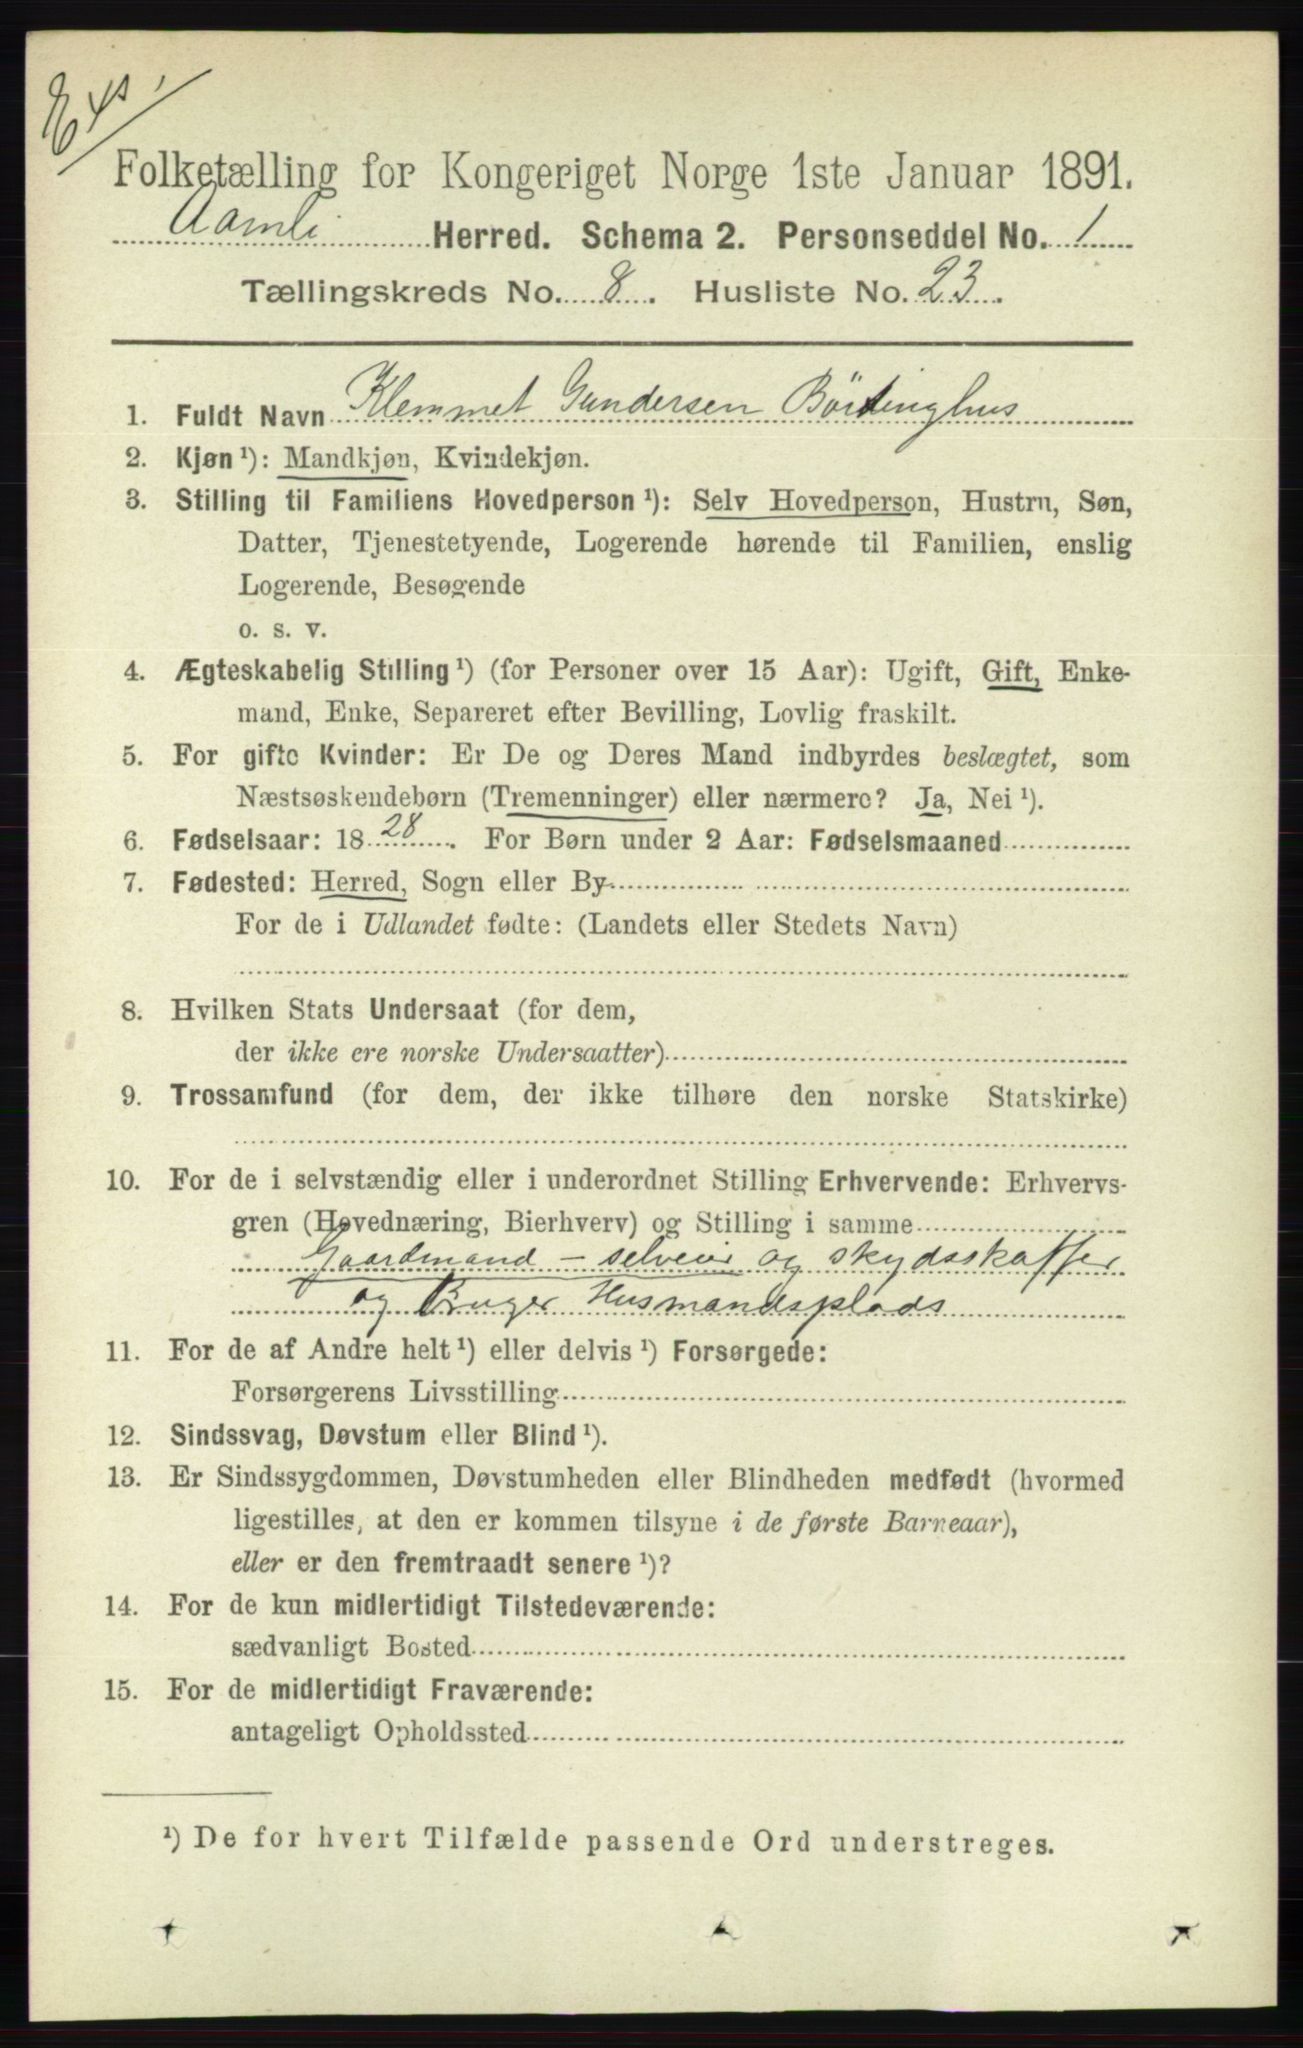 Folketælling for Kongeriget Norge 1ste Januar 1891.
Aamli Herred. Schema 2. Personseddel No. 1
Tællingskreds No. 8. Husliste No. 23.
1. Fuldt Navn Klemmet Gundersen Börtinghus
2. Kjøn ¹): Mandkjøn, Kvindekjøn.
3. Stilling til Familiens Hovedperson ¹): Selv Hovedperson, Hustru, Søn,
Datter, Tjenestetyende, Logerende hørende til Familien, enslig
Logerende, Besøgende
o. s. v.
4. Ægteskabelig Stilling ¹) (for Personer over 15 Aar): Ugift, Gift, Enke-
mand, Enke, Separeret efter Bevilling, Lovlig fraskilt.
5. For gifte Kvinder: Er De og Deres Mand indbyrdes beslægtet, som
Næstsøskendebørn (Tremenninger) eller nærmere? Ja, Nei ¹).
6. Fødselsaar: 1828. For Børn under 2 Aar: Fødselsmaaned
7. Fødested: Herred, Sogn eller By
For de i Udlandet fødte: (Landets eller Stedets Navn)
8. Hvilken Stats Undersaat (for dem,
der ikke ere norske Undersaatter)
9. Trossamfund (for dem, der ikke tilhøre den norske Statskirke)
10. For de i selvstændig eller i underordnet Stilling Erhvervende: Erhvervs-
gren (Hovednæring, Bierhverv) og Stilling i samme
Gaardmand – selveier og skydsskaffer
og Bruger Husmandsplads
11. For de af Andre helt ¹) eller delvis ¹) Forsørgede:
Forsørgerens Livsstilling
12. Sindssvag, Døvstum eller Blind ¹).
13. Er Sindssygdommen, Døvstumheden eller Blindheden medfødt (hvormed
ligestilles, at den er kommen tilsyne i de første Barneaar),
eller er den fremtraadt senere ¹)?
14. For de kun midlertidigt Tilstedeværende:
sædvanligt Bosted
15. For de midlertidigt Fraværende:
antageligt Opholdssted
¹) De for hvert Tilfælde passende Ord understreges.